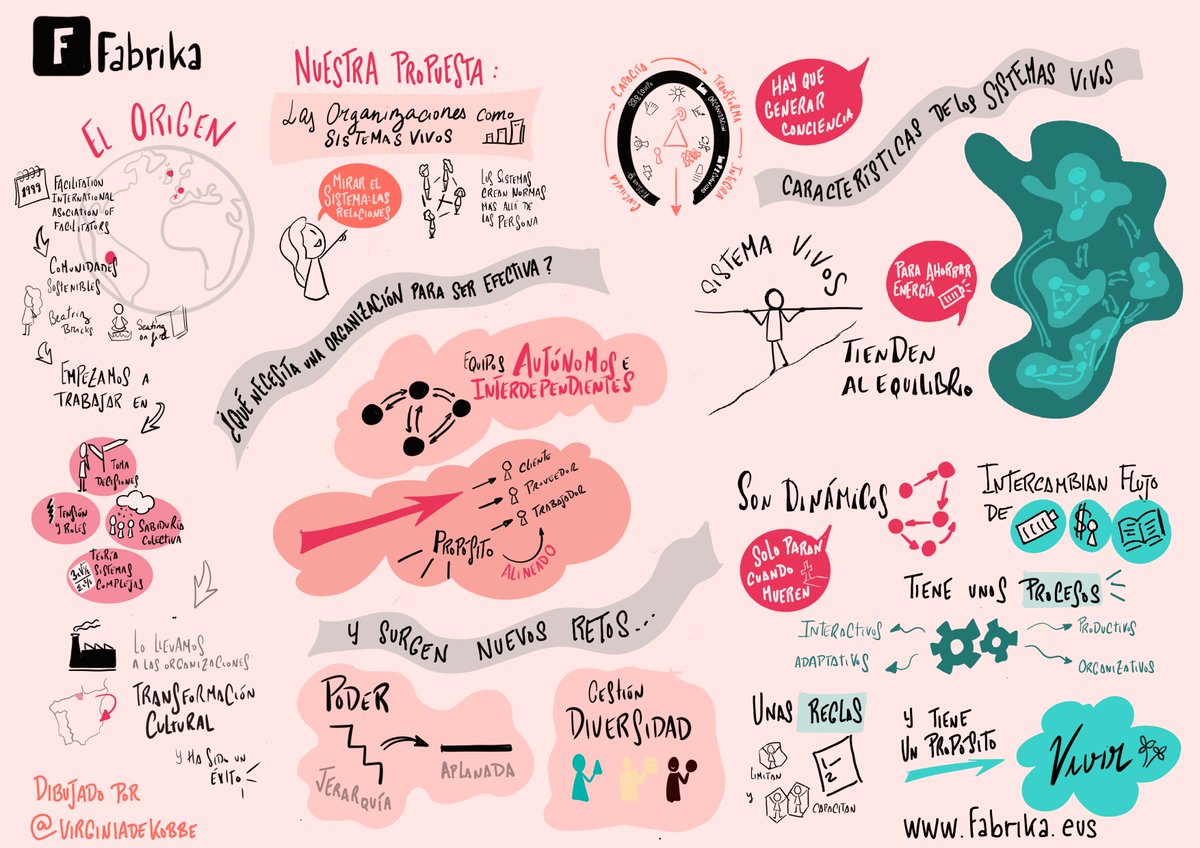 F Fabrika
EL ORIGEN
1999
FACILITATION
INTERNATIONAL
ASOCIATION OF
FACILITATORS
COMUNIDADES
SOSTENIBLES
Beatriz
Seating
on fire
EMPEZAMOS A
TRABAJAR EN
TOMA
DECISIONES
TENSIÓN
Y ROLES
SABIDURÍA
COLECTIVA
TEORÍA
SISTEMAS
COMPLEJAS
LO LLEVAMOS
A LAS ORGANIZACIONES
TRANSFORMACIÓN
CULTURAL
Y HA SIDO UN
ÉXITO
DIBUJADO POR
@VIRGINIADEKOBBE
NUESTRA PROPUESTA:
Las Organizaciones como
SISTEMAS VIVOS
MIRAR EL
SISTEMA: LAS
RELACIONES
LOS SISTEMAS
CREAN NORMAS
MAS ALLÁ DE
LAS PERSONA
¿QUÉ NECESITA UNA ORGANIZACIÓN PARA SER EFECTIVA?
EQUIPOS AUTÓNOMOS E
INTERDEPENDIENTES
CLIENTE
PROVEEDOR
TRABAJADOR
PROPÓSITO
ALINEADO
Y SURGEN NUEVOS RETOS...
PODER
JERARQUÍA
APLANADA
GESTIÓN
DIVERSIDAD
CAPACITA
TRANSFORMA
INTEGRA
ORGANIZACIÓN
HAY QUE
GENERAR
CONCIENCIA
CARACTERÍSTICAS DE LOS SISTEMAS VIVOS
SISTEMA VIVOS
PARA AHORRAR
ENERGÍA
TIENDEN
AL EQUILIBRIO
SON DINÁMICOS
SOLO PARAN
CUANDO
MUEREN
INTERCAMBIAN FLUJO
DE
$
TIENE UNOS PROCESOS
INTERACTIVOS
ADAPTATIVOS
PRODUCTIVOS
ORGANIZATIVOS
UNAS REGLAS
LIMITAN
Y
CAPACITAN
1-
2-
Y TIENE
UN PROPÓSITO
Vivir
www.fabrika.eus